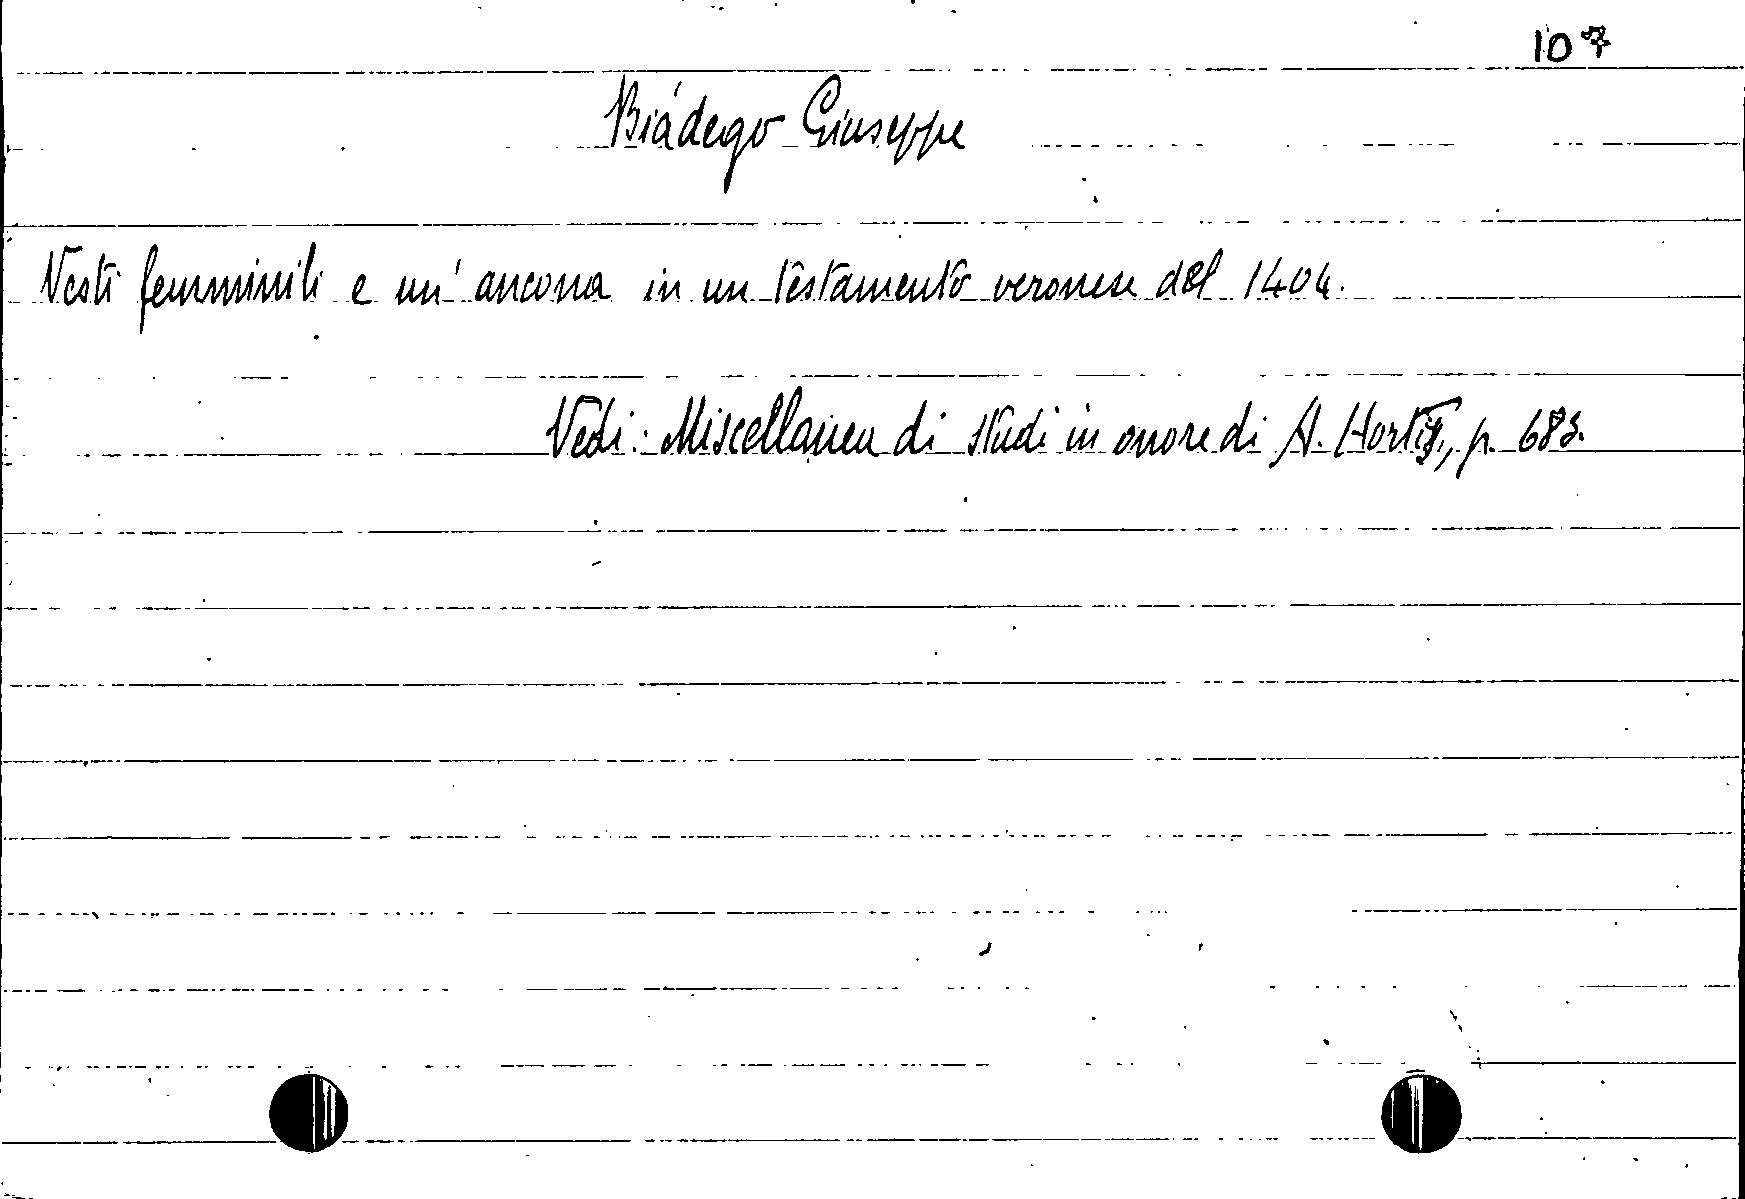 107
Biádego Giuseppe
Vesti femminili e un' ancona in un testamento veronese del 1404.
Vedi: Miscellanea di studi in onore di A. Hortis, p. 683.